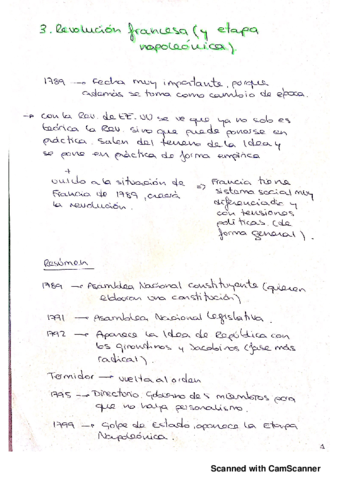 3. Revolución francesa (y etapa
napoleónica).
1789 → Fecha muy importante, porque
además se toma como cambio de época.
→ con la Rev. de EE. UU se ve que ya no solo es
teórica la Rev. sino que puede ponerse en
práctica. Salen del terreno de la Idea y
se pone en práctica de forma empírica
+
unido a la situación de
Francia de 1789, creará
la revolución.
⇒ Francia tiene
sistema social muy
diferenciado y
con tensiones
políticas. (de
forma general).
Resúmen
1989 → Asamblea Nacional constituyente (quieren
elaborar una constitución).
1791 → Asamblea Nacional Legislativa.
1792 → Aparece la Idea de República con
los girondinos y Jacobinos (fase más
radical).
Termidor → vuelta al orden
1795 → Directorio. Gobierno de 5 miembros para
que no haya personalismo.
1799 → Golpe de Estado, aparece la Etapa
Napoleónica.
1
Scanned with CamScanner